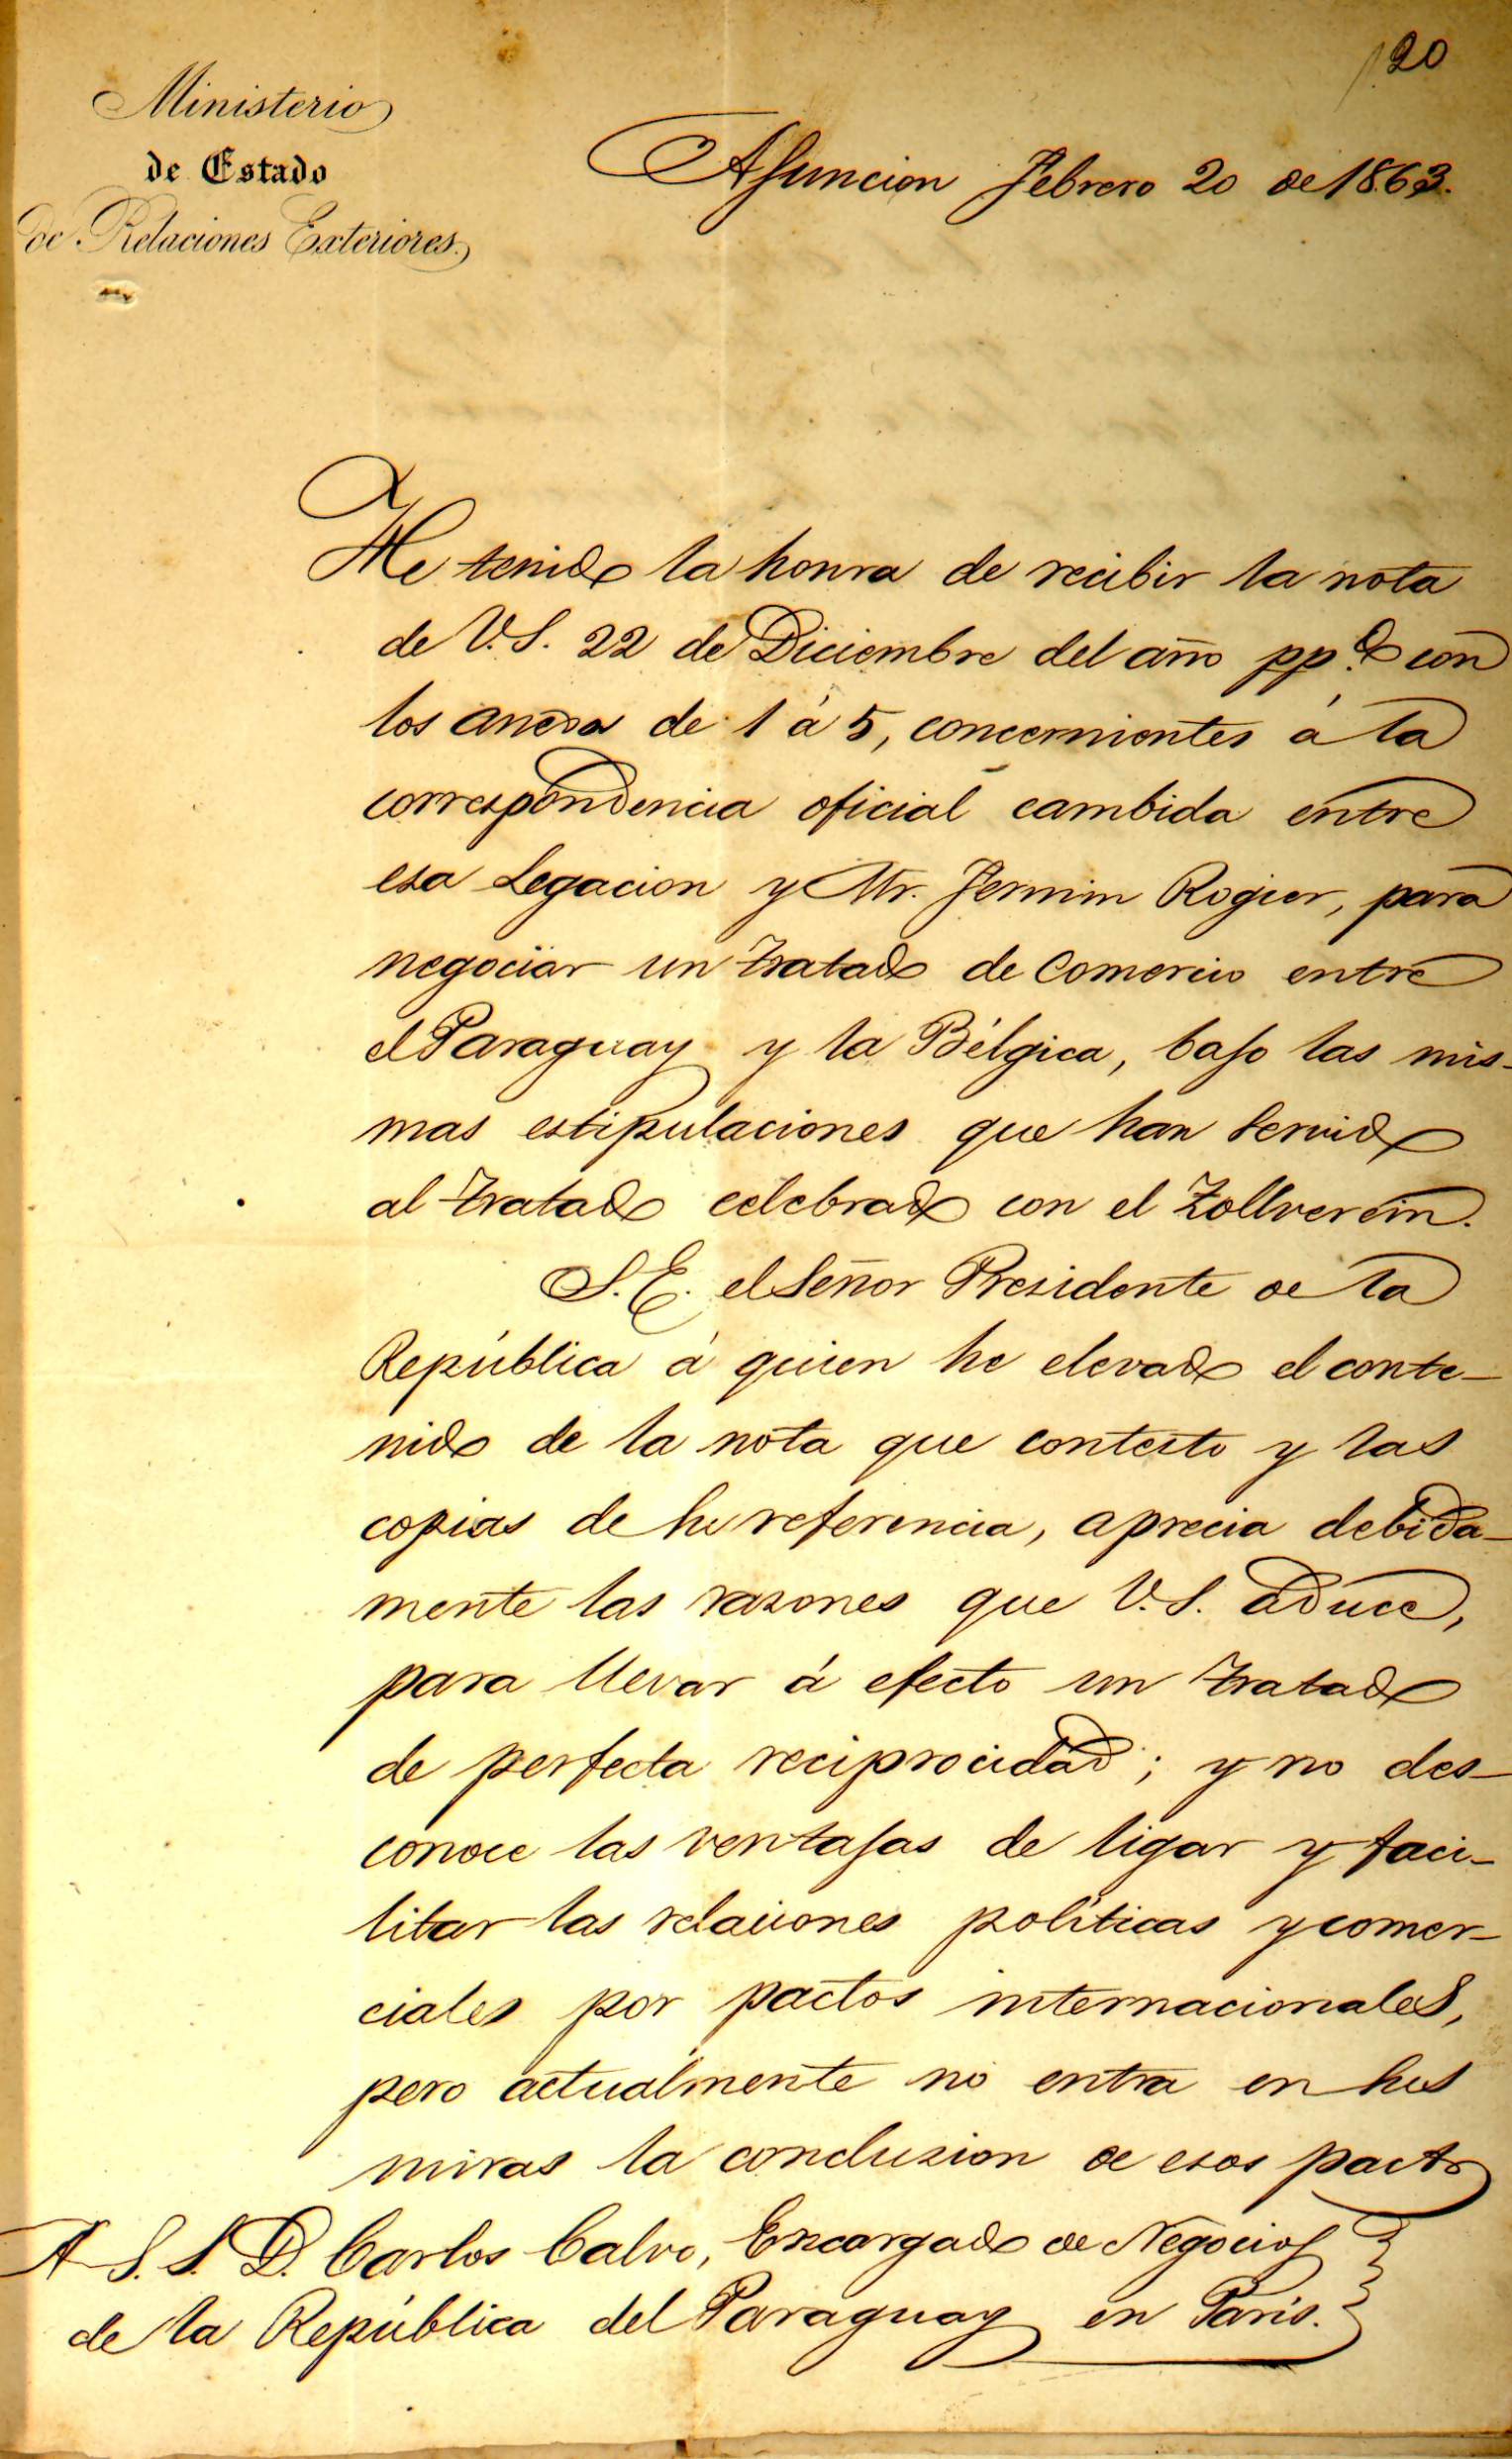 20
Ministerio
de Estado
de Relaciones Exteriores.
Asuncion Febrero 20 de 1863.
He tenido la honra de recibir la nota
de V.S. 22 de Diciembre del año pp.do con
los anexos de 1 á 5, concernientes á la
correspondencia oficial cambida entre
esa Legacion y Mr. Firmin Rogier, para
negociar un tratado de Comercio entre
el Paraguay y la Bélgica, bajo las mis-
mas estipulaciones que han servido
al tratado celebrado con el Zollverein.
S.E. el Señor Presidente de la
República á quien he elevado el conte-
nido de la nota que contesto y las
copias de su referencia, aprecia debida-
mente las razones que V.S. aduce,
para llevar á efecto un tratado
de perfecta reciprocidad; y no des-
conoce las ventajas de ligar y faci-
litar las relaciones políticas y comer-
ciales por pactos internacionales,
pero actualmente no entra en sus
miras la conclusion de esos pactos
A S.S. D. Carlos Calvo, Encargado de Negocios
de la República del Paraguay en Paris.